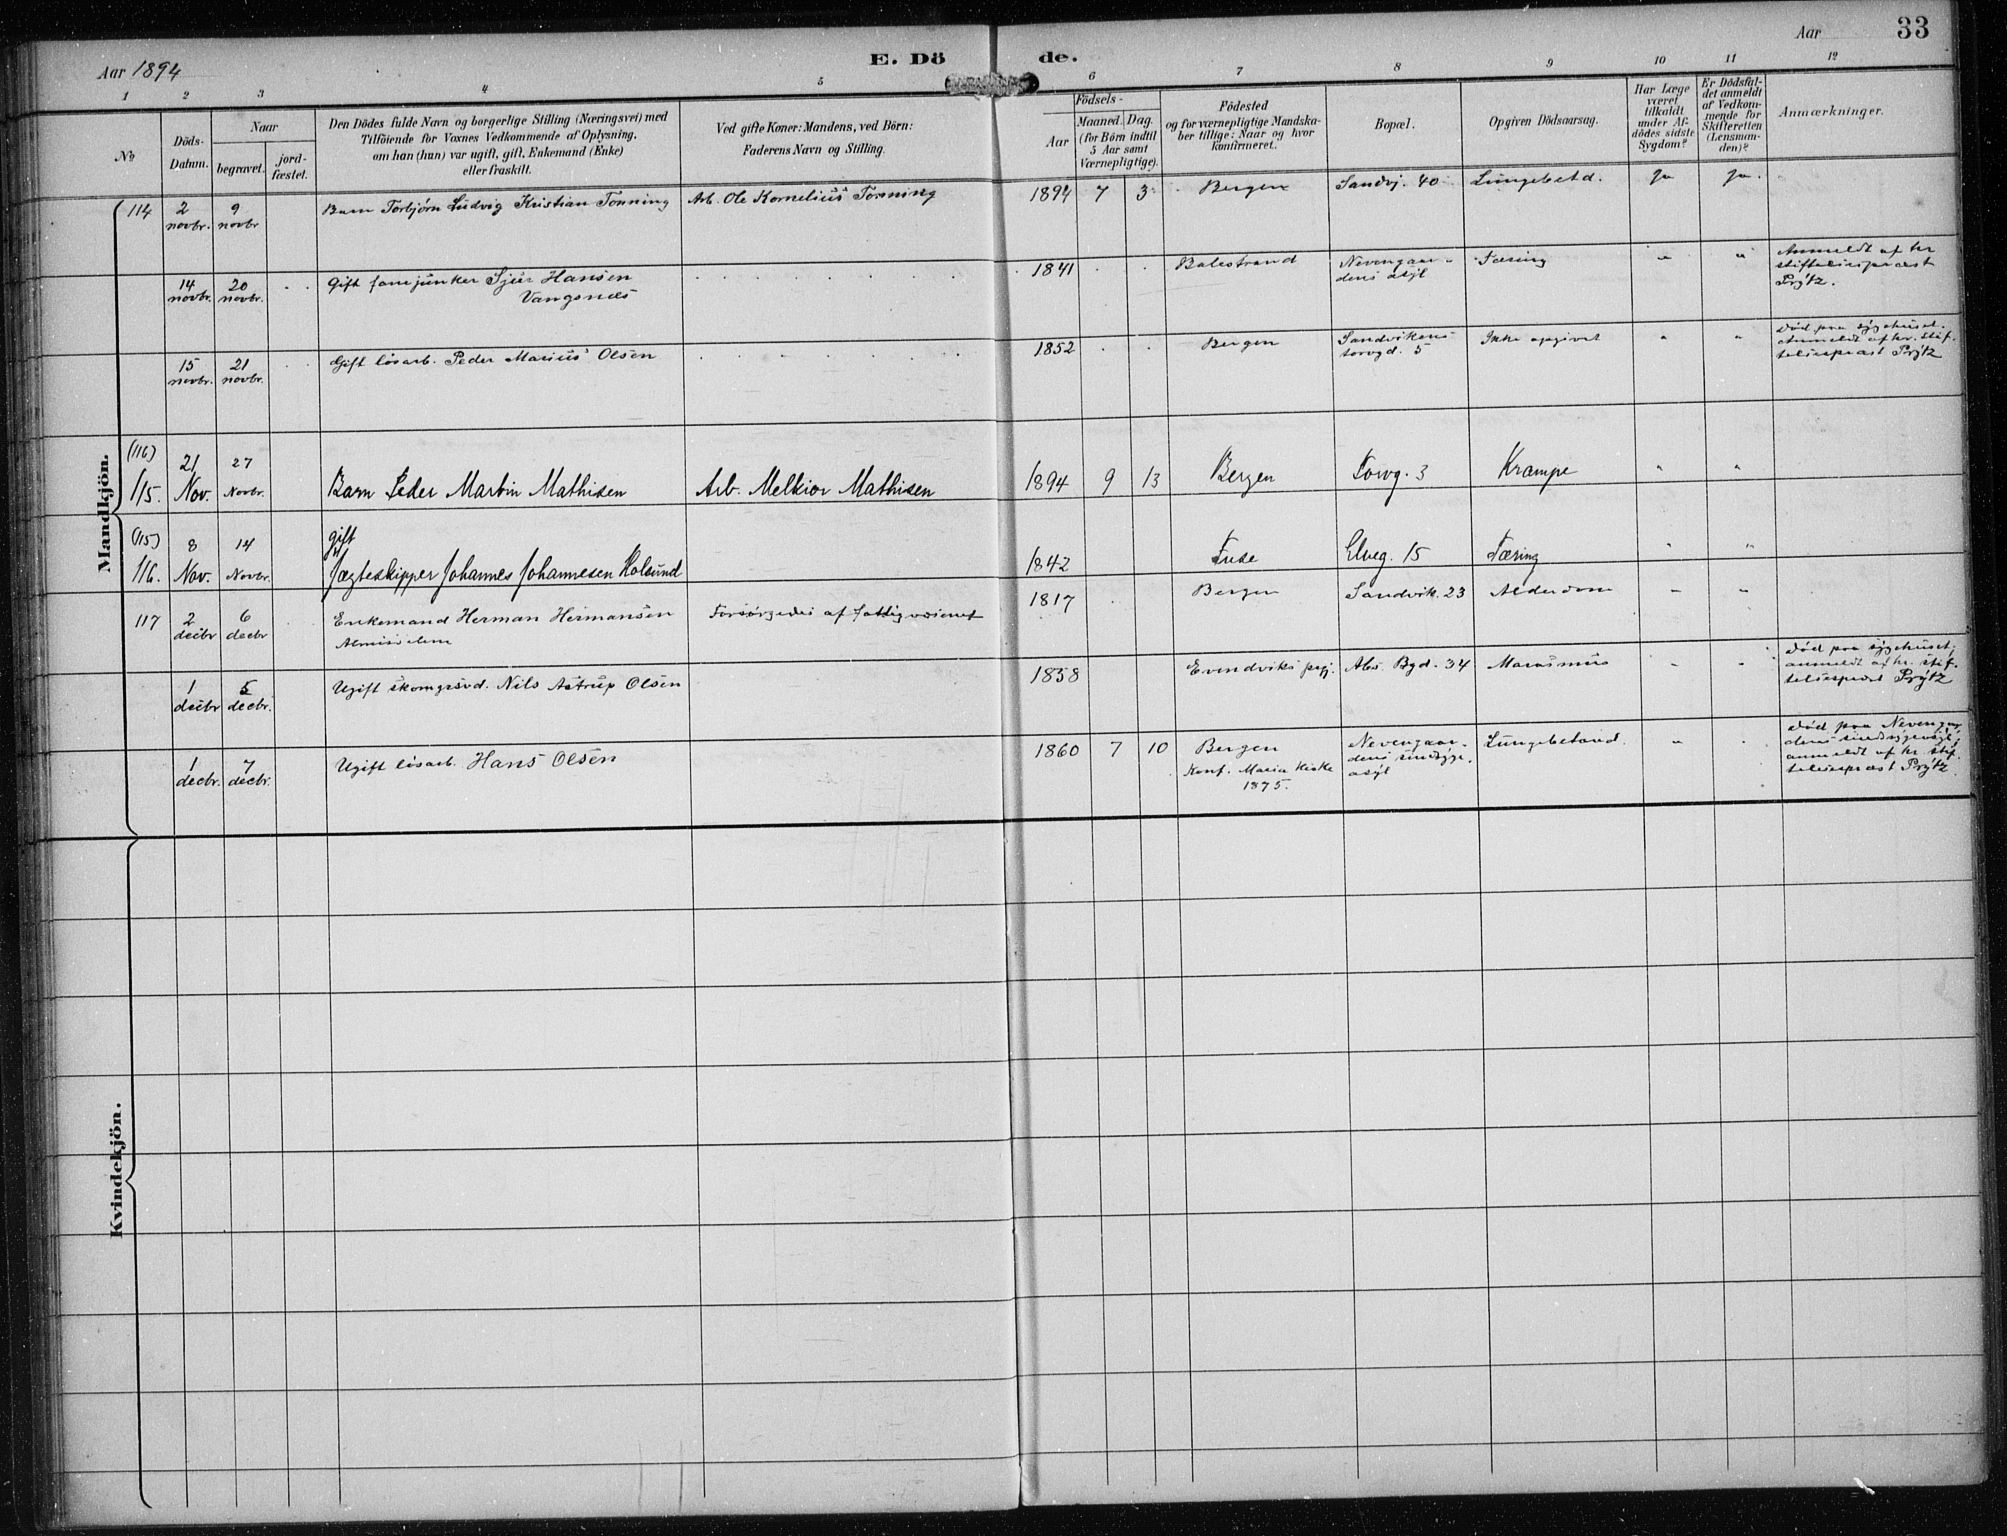 Aar 1894
E. Dö de.
Aar
33
1 2 3 4 5 6 7 8 9 10 11 12
No
Döds-
Datum.
Naar
begravet.
jord-
fæstet.
Den Dödes fulde Navn og borgerlige Stilling (Næringsvei) med
Tilföiende for Voxnes Vedkommende af Oplysning,
om han (hun) var ugift, gift, Enkemand (Enke)
eller fraskilt.
Ved gifte Koner: Mandens, ved Börn:
Faderens Navn og Stilling.
Födsels-
Aar
Maaned. Dag.
(for Börn indtil
5 Aar samt
Værnepligtige).
Födested
og for værnepligtige Mandska-
ber tillige: Naar og hvor
konfirmeret.
Bopæl.
Opgiven Dödsaarsag.
Har Læge
været
tilkaldt
under Af-
dödes sidste
Sygdom?
Er Dödsfal-
det anmeldt
af Vedkom-
mende for
Skifteretten
(Lensman-
den)?
Anmærkninger.
Mandkjön.
114 2 novbr. 9 novbr Barn Torbjørn Ludvig Kristian Tonning Arb. Ole Kornelius Tonning 1894 7 3 Bergen Sandvj. 40 Lungebetd. Ja Ja.
14 novbr. 20 novbr. Gift fanejunker Sjur Hansen
Vangsnæs
1841 Balestrand Nevengaar-
dens asyl
Tæring " "
Anmeldt af hr
stiftelsespræst
Prÿtz.
15 novbr. 21 novbr. Gift løsarb. Peder Marius Olsen 1852 Bergen Sandvikens
torvgd. 5
Ikke opgivet " "
død paa sygehuset.
Anmeldt af hr. stif-
telsespræst Prÿtz
(116)
115. 21 Nov. 27 Novbr. Barn Peder Martin Mathisen Arb. Melkior Mathisen 1894 9 13 Bergen Torvg. 3 Krampe " "
(115)
116. 8 Nov. 14 Novbr. gift
Jægteskipper Johannes Johannesen Holsund 1842 Fuse Elveg. 15 Tæring " "
117 2 decbr 6 decbr Enkemand Herman Hermansen
Almisselem
Forsørgedes af fattigvæsenet 1817 Bergen Sandvik. 23 Alderdom " "
1 decbr 5 decbr. Ugift skomgrsvd. Nils Astrup Olsen 1858 Evendviks prgj. Abs. Bgd. 34 Marasmus " "
død paa sygehuset,
anmeldt af hr. stif-
telsespræst Prÿtz
1 decbr. 7 decbr. Ugift løsarb. Hans Olsen 1860 7 10 Bergen
Konf. Maria Kirke
1875.
Nevengaar-
dens sindsyge-
asyl
Lungebetænd. "
død paa Nevengaar-
dens sindsygeasyl,
anmeldt af hr stif-
telsespræst Prÿtz
Kvindekjön.